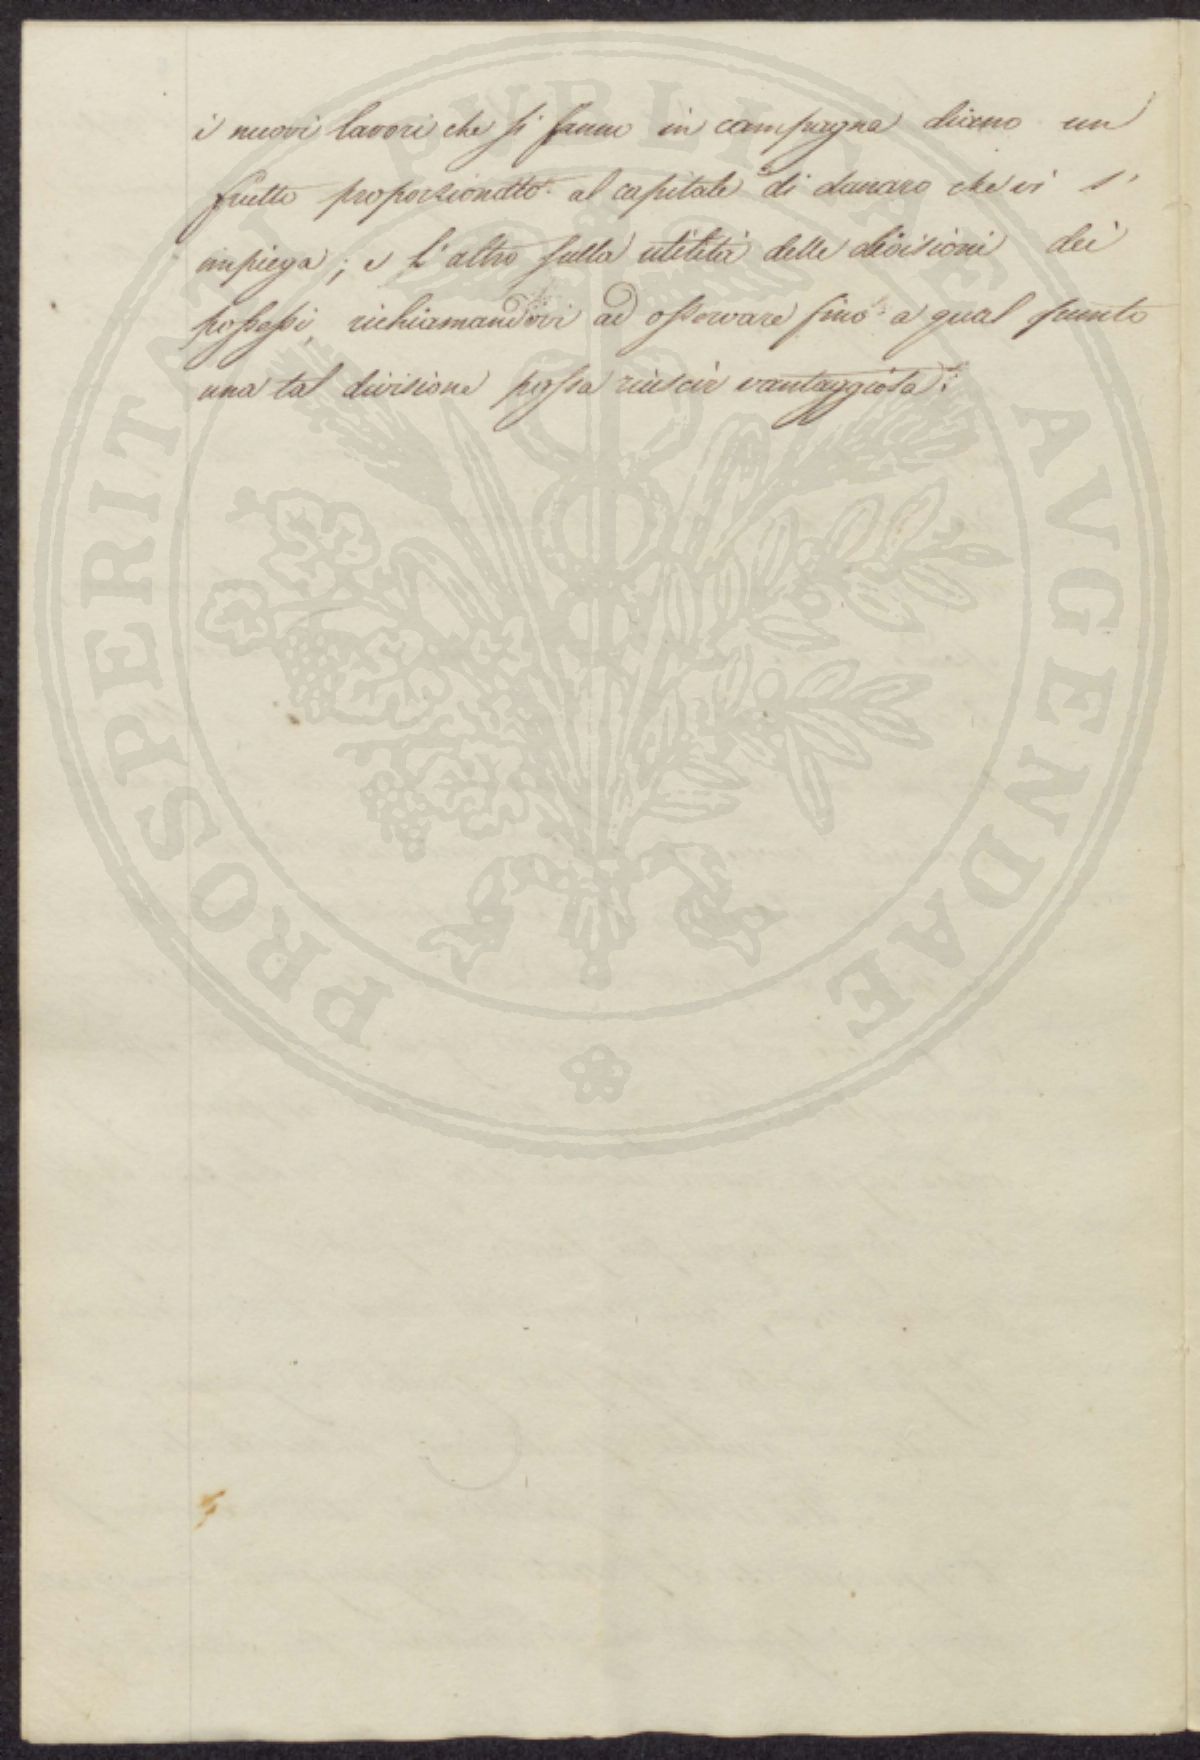 i nuovi lavori che si fanno in campagna diano un
frutto proporzionato al capitale di danaro che vi s'
impiega; e l'altro sulla utilità delle divisioni dei
possessi, richiamandovi ad osservare fino a qual punto
una tal divisione possa riuscir vantaggiosa:
PROSPERITATI PVBLICAE AVGENDAE